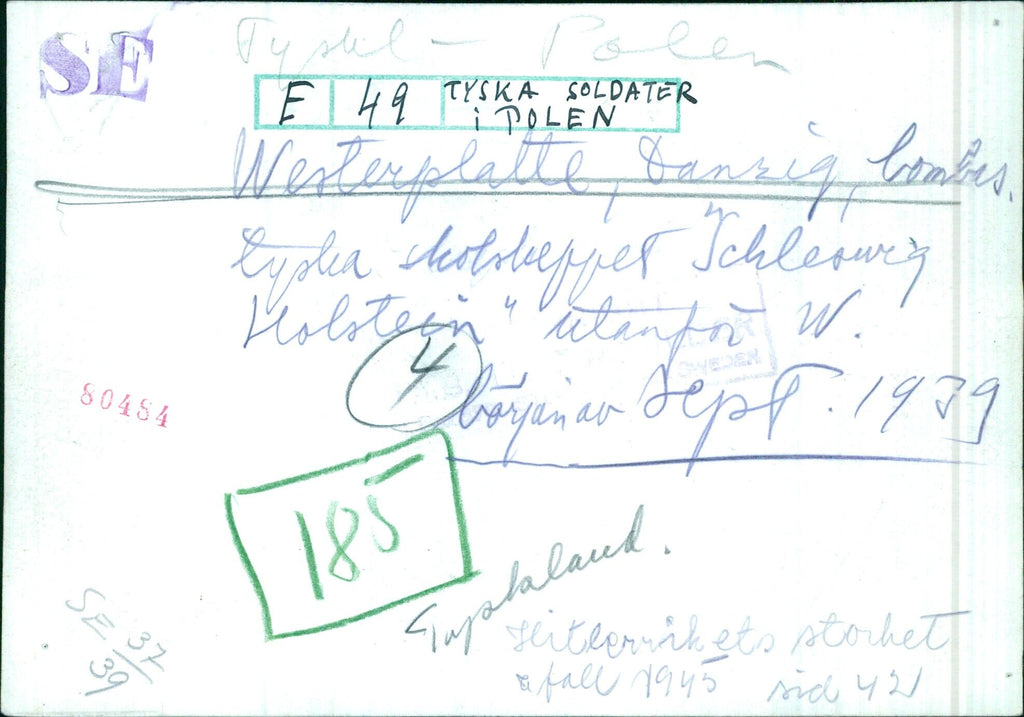 SE
Tyskl - Polen
E 49 TYSKA SOLDATER
i POLEN
Westerplatte, Danzig, bombas.
tyska skolskeppet "Schleswig
Holstein" utanför W.
SWEDEN
4
början av Sept. 1939
80484
185
Tyskland.
SE 37/39
Hitlerrikets storhet
o fall 1945 sid 421